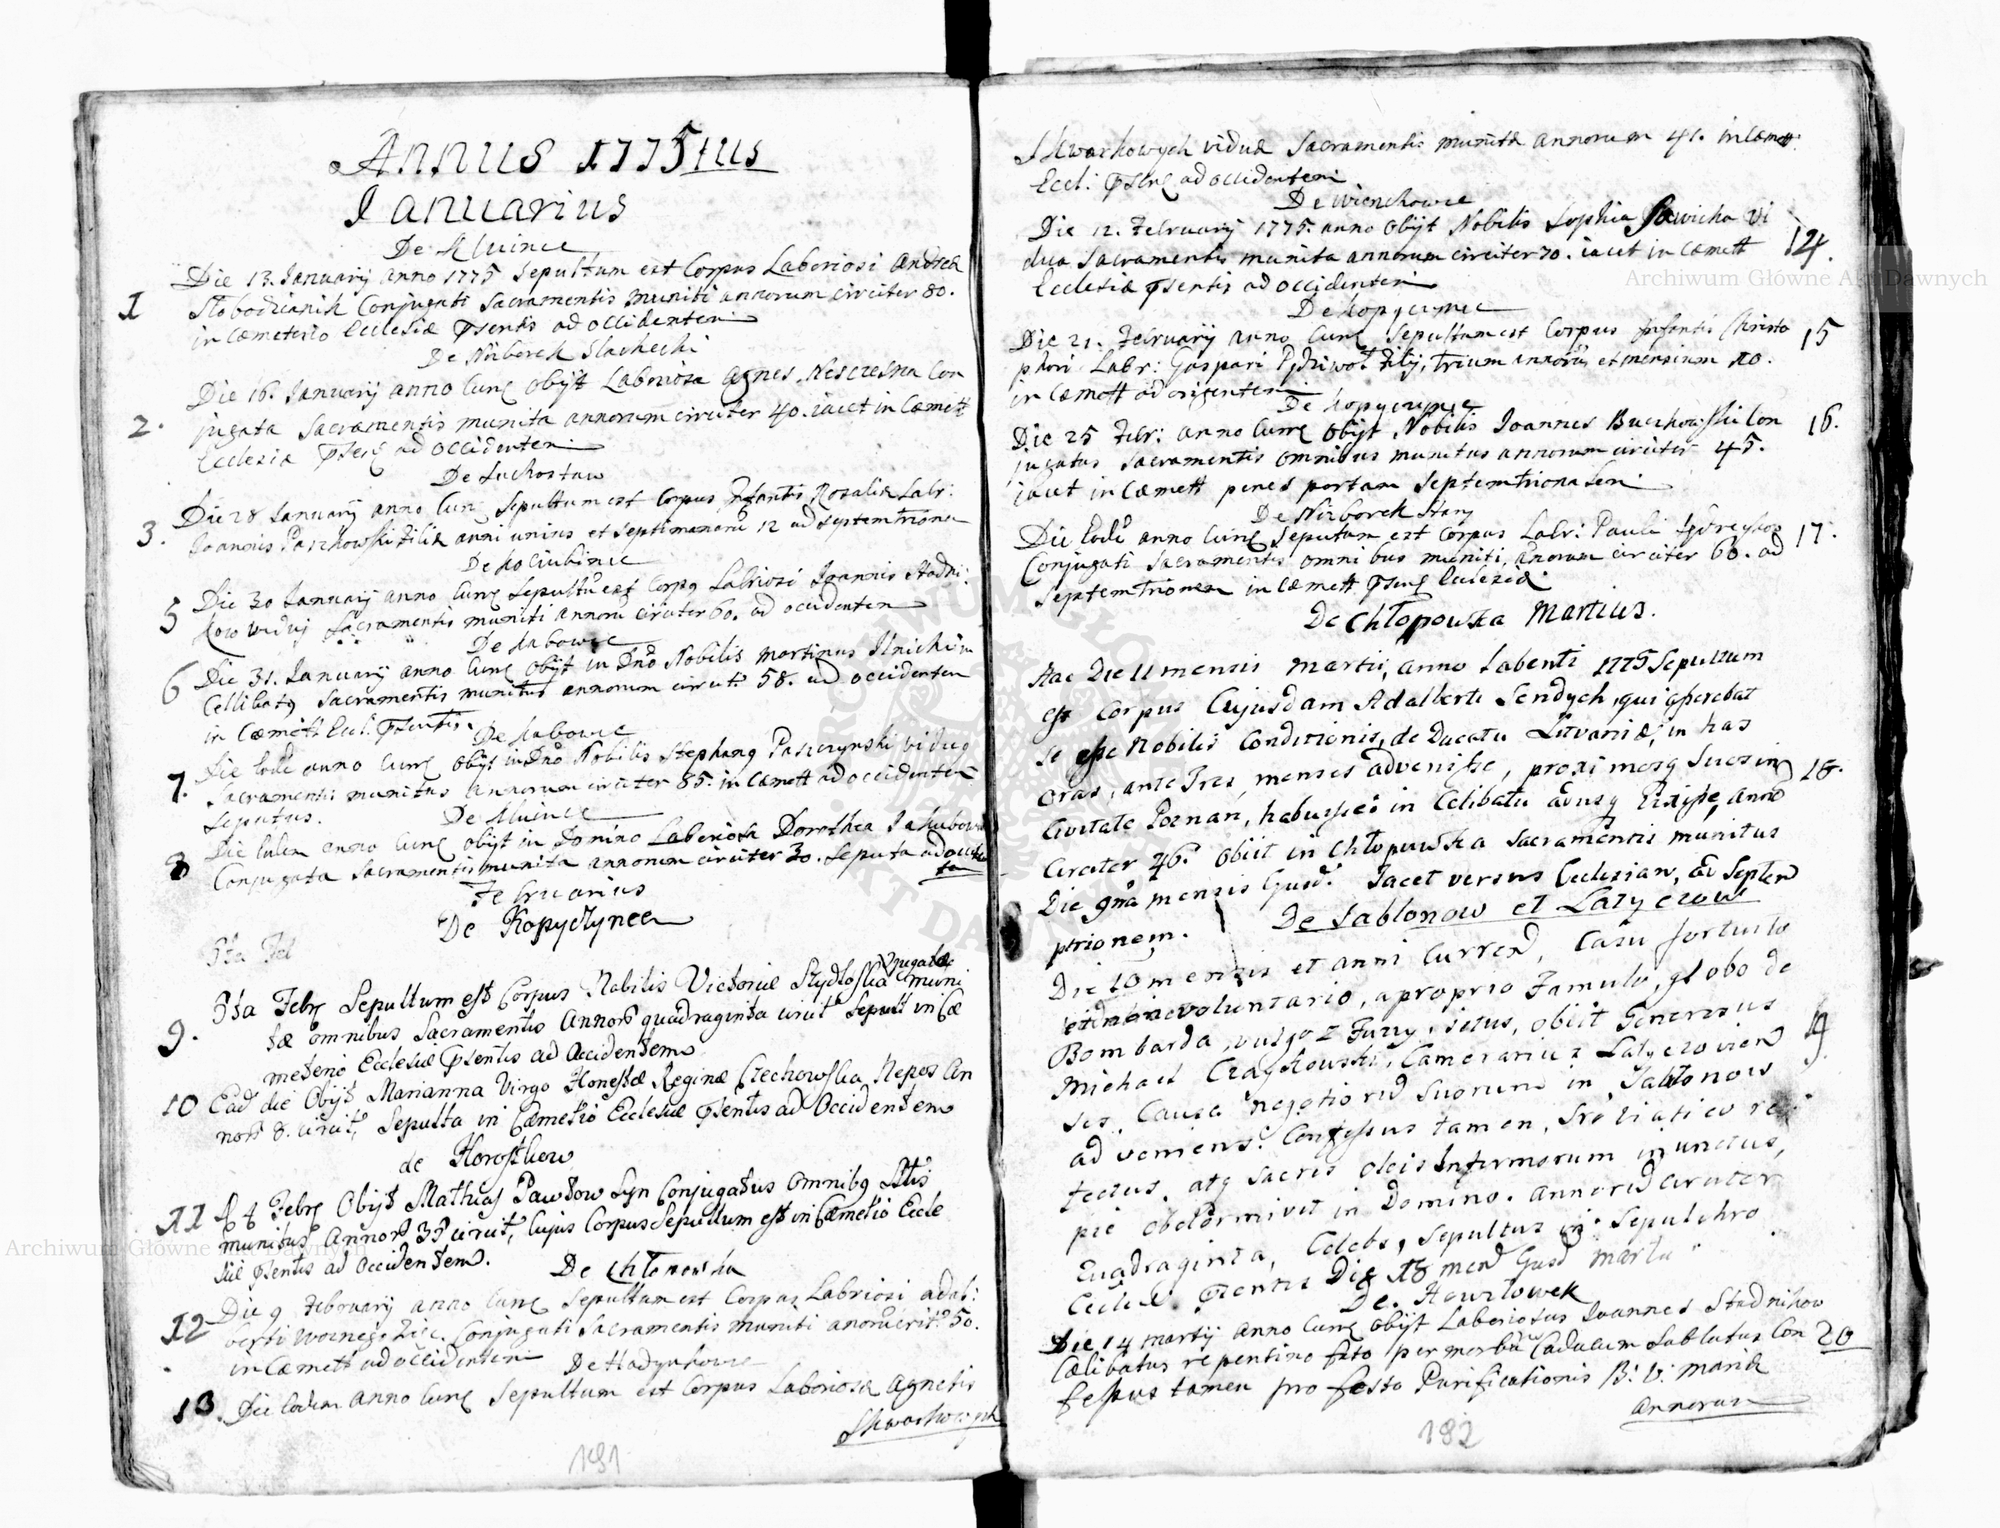 Annus 1775tus
Januarius
De Kluince
Die 13. Januarij anno 1775 Sepultum est Corpus Laboriosi Andreæ
1
Slobodzianik Conjugati Sacramentis muniti annorum circiter 80.
in Cæmeterio Ecclesiæ psentis ad occidentem
De Niżborek Szlachecki
Die 16. Januarij anno Curr obijt Laboriosa Agnes Con
2.
jugata Sacramentis munita annorum circiter 40. iacet in Cæmett
Ecclesiæ ad occidentem
De Suchostaw
Die 28 Januarij anno Curr Sepultum est Corpus Infantis Rosaliæ Labr:
3.
Joannis Paszkowski Filiæ anni unius et septimanarū 12 ad septemtrionem
De Kociubince
5
Die 30 Januarij anno Curr Sepultū est Corpq Labriosi Joannis Stadni:
kow vidui Sacramentis muniti annorū circiter 60. ad occidentem
De Rabowce
6
Die 31. Januarij anno Curr obijt in Dno Nobilis Martinus in
Cellibatq Sacramentis munitus annorum circit: 58. ad occidentem
in Cæmett Eccl. psentis.
De Rabowce
7.
Die anno Curr obijt in Dno Nobilis Stephanq Paszczynski viduq
Sacramentis munitus annorum circiter 85. in Cæmett ad occidentem
Seputus.
De Kluince
8
Die anno Curr obijt in Domino Laboriosa Dorothea
Conjugata Sacramentis munita annorum circiter 30. Seputa ad
Februarius
De Kopyczynce
3tia Feb
jugatæ
9.
3tia Febr Sepultum est Corpus Nobilis Victoriæ muni
tæ omnibus Sacramentis Annorū quadraginta circit Sepult in Cæ
meterio Ecclesiæ psentis ad Occidentem
10
Ead die Obijt Marianna Virgo Honestæ Reginæ Czechowska Nepos An
norū 8. circit, Sepulta in Cæmetio Ecclesiæ psentis ad Occidentem
de Horostkow
11
Febr Obijt Mathias Pawłow Syn Conjugatus omnibq
munitus Annorū 35 circit, Cujus Corpus Sepultum est in Cæmetio Eccle
siæ psentis ad Occidentem.
De Chłopowka
12
Die 9 Februarij anno Curr Sepultum est Corpus Labriosi Adal:
berti Conjugati Sacramentis muniti anorū circit: 50.
in Cæmett ad occidentem
De Hadynkowce
13.
Die Eodem anno Curr Sepultum est Corpus Laboriosæ Agnetis
Skwarkowych
191
Skwarkowych viduæ Sacramentis munitæ annorum 41. in Cæmett:
Eccl: ad occidentem
De Wienckowce
Die 12. Februarij 1775. anno obijt Nobilis Sophia Sawicka vi
14.
dua Sacramentis munita annorum circiter 70. iacet in Cæmett
Ecclesiæ psentis ad occidentem
De Kopyczynce
Die 21. Februarij anno Curr Sepultum est Corpus Infantis Christo
15
phori Labr: Gaspari Filij, trium annorū et mensium 10.
in Cæmett ad orientem
De Kopyczynce
Die 25 Febr: anno Curr obijt Nobilis Joannes Buczkowski Con
16.
jugatus Sacramentis omnibus munitus annorum circiter 45.
iacet in Cæmett penes portam Septemtrionalem
De Niżborek Stary
Die anno Curr Seputum est Corpus Labr: Pauli
17.
Conjugati Sacramentis omnibus muniti, anorum circiter 60. ad
Septemtrionem in Cæmett Ecclesiæ.
De Chłopowka Martius.
Hac Die 11 mensis Martii, anno labenti 1775 Sepultum
est Corpus Cujusdam Adalberti Sendych, qui asserebat
se esse Nobilis Conditionis, de Ducatu Litvaniæ, in has
oras, ante Tres menses advenisse, proximosq suos in
18.
Civitate Poznań, habuisse in Celibatu vixisse, anno
circiter 46. obiit in Chłopowka Sacramentis munitus
Die 9na mensis Ejusd. Jacet versus Ecclesian, ad Septen
ptrionem.
De Jabłonow et Latyczow
Die 10 mensis et anni Curren, Casu fortuito
et voluntario, a proprio Famulo, globo de
Bombarda, vulgo z Fuzyi, ictus, obiit Generosus
19
Michael Czaykowski, Camerarius Latyczovien
sis, Causa negotiorū suorum in Jabłonow
adveniens. Confessus tamen,
fectus, atq sacris oleis Infirmorum inunctus,
pie obdormivit in Domino. Annorū circiter
Quadraginta, Celebs, Sepultus in Sepulchro
Eccles psentis Die 18 men Ejusd Martii
De. Howiłowek
Die 14 Martij anno Curr obijt Laboriosus Joannes Stadnikow
20
Cælibatus repentino fato per morbū Caducum Sublatus Con
fessus tamen pro festo Purificationis B: V: Mariæ
annorum
192
Archiwum Główne Akt Dawnych
Archiwum Główne Akt Dawnych